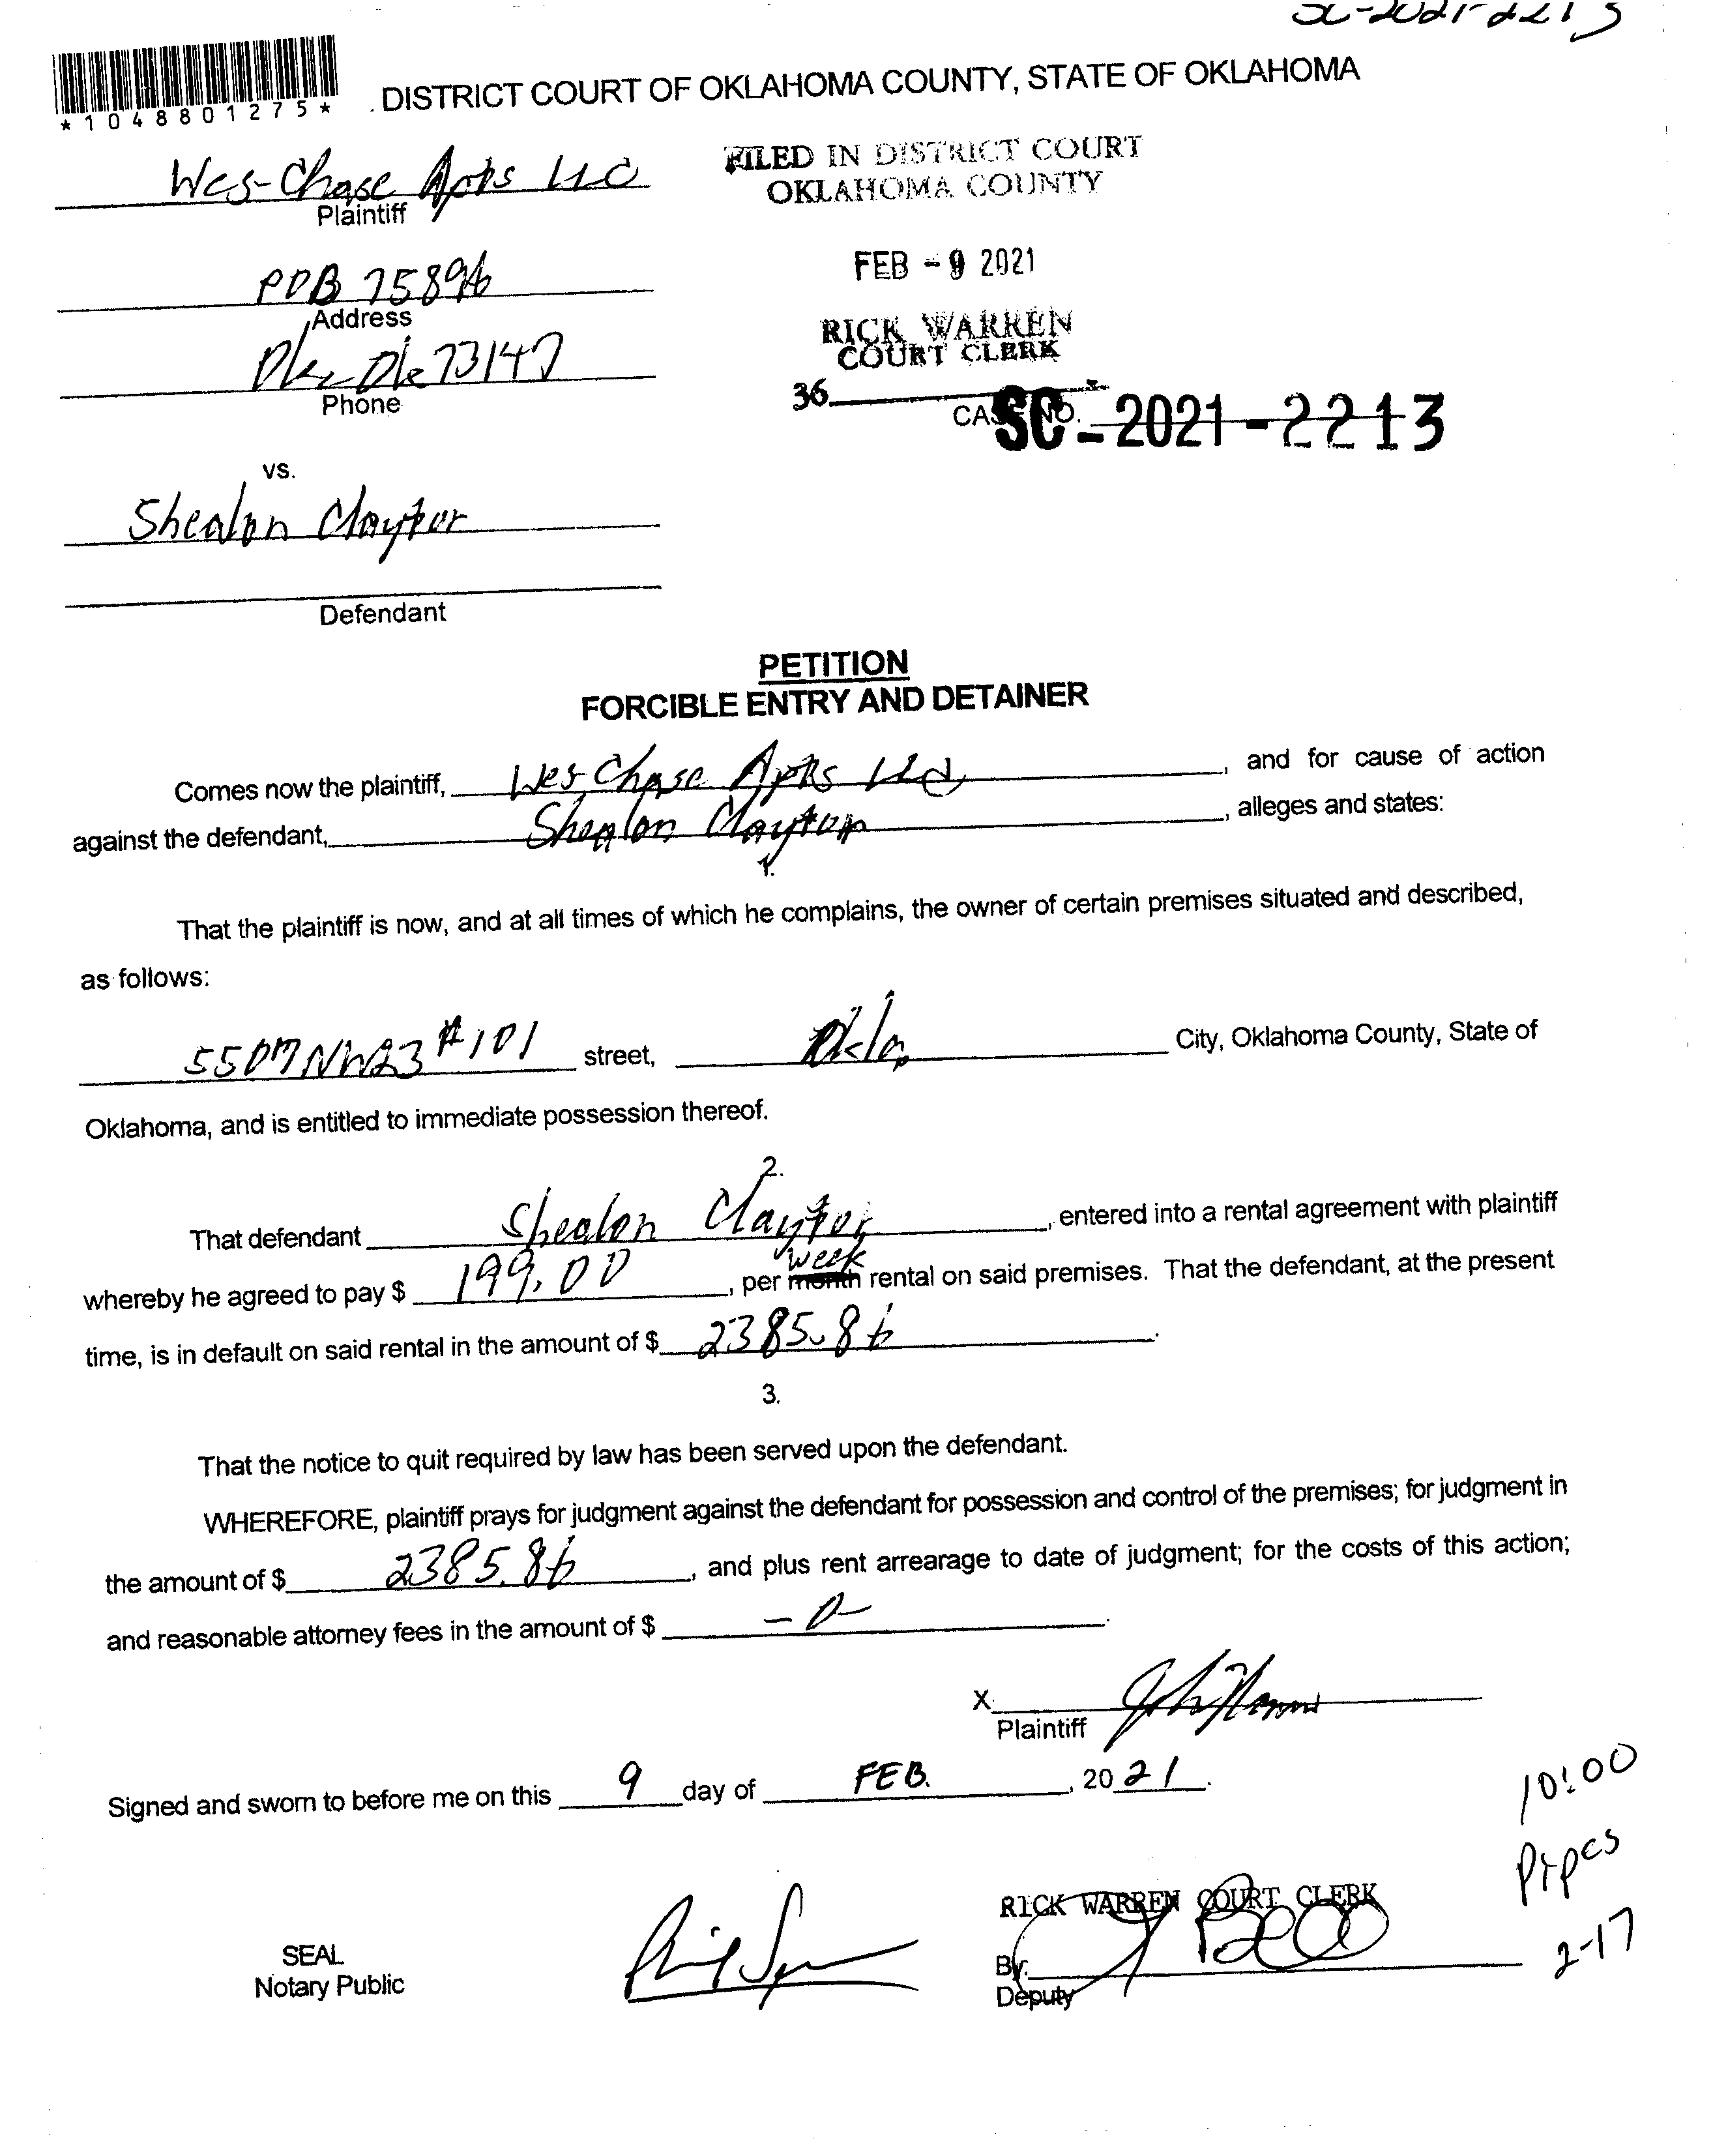 SC-2021-2213
*1048801275*
DISTRICT COURT OF OKLAHOMA COUNTY, STATE OF OKLAHOMA
Wes-Chase Apts LLC
Plaintiff
FILED IN DISTRICT COURT
OKLAHOMA COUNTY
POB 75896
Address
FEB - 9 2021
Okc Ok 73147
Phone
RICK WARREN
COURT CLERK
36
CASE NO.
SC - 2021 - 2213
vs.
Shealon Claytor
Defendant
PETITION
FORCIBLE ENTRY AND DETAINER
Comes now the plaintiff, Wes Chase Apts LLC, and for cause of action
against the defendant, Shealon Claytor, alleges and states:
1.
That the plaintiff is now, and at all times of which he complains, the owner of certain premises situated and described,
as follows:
5507 NW23 #101 street, Okla City, Oklahoma County, State of
Oklahoma, and is entitled to immediate possession thereof.
2.
That defendant Shealon Claytor, entered into a rental agreement with plaintiff
week
whereby he agreed to pay $ 199.00, per month rental on said premises. That the defendant, at the present
time, is in default on said rental in the amount of $ 2385.86.
3.
That the notice to quit required by law has been served upon the defendant.
WHEREFORE, plaintiff prays for judgment against the defendant for possession and control of the premises; for judgment in
the amount of $ 2385.86, and plus rent arrearage to date of judgment; for the costs of this action;
and reasonable attorney fees in the amount of $ -0-.
X
Plaintiff
Signed and sworn to before me on this 9 day of FEB., 2021.
10:00
2-17
RICK WARREN COURT CLERK
SEAL
Notary Public
By:
Deputy